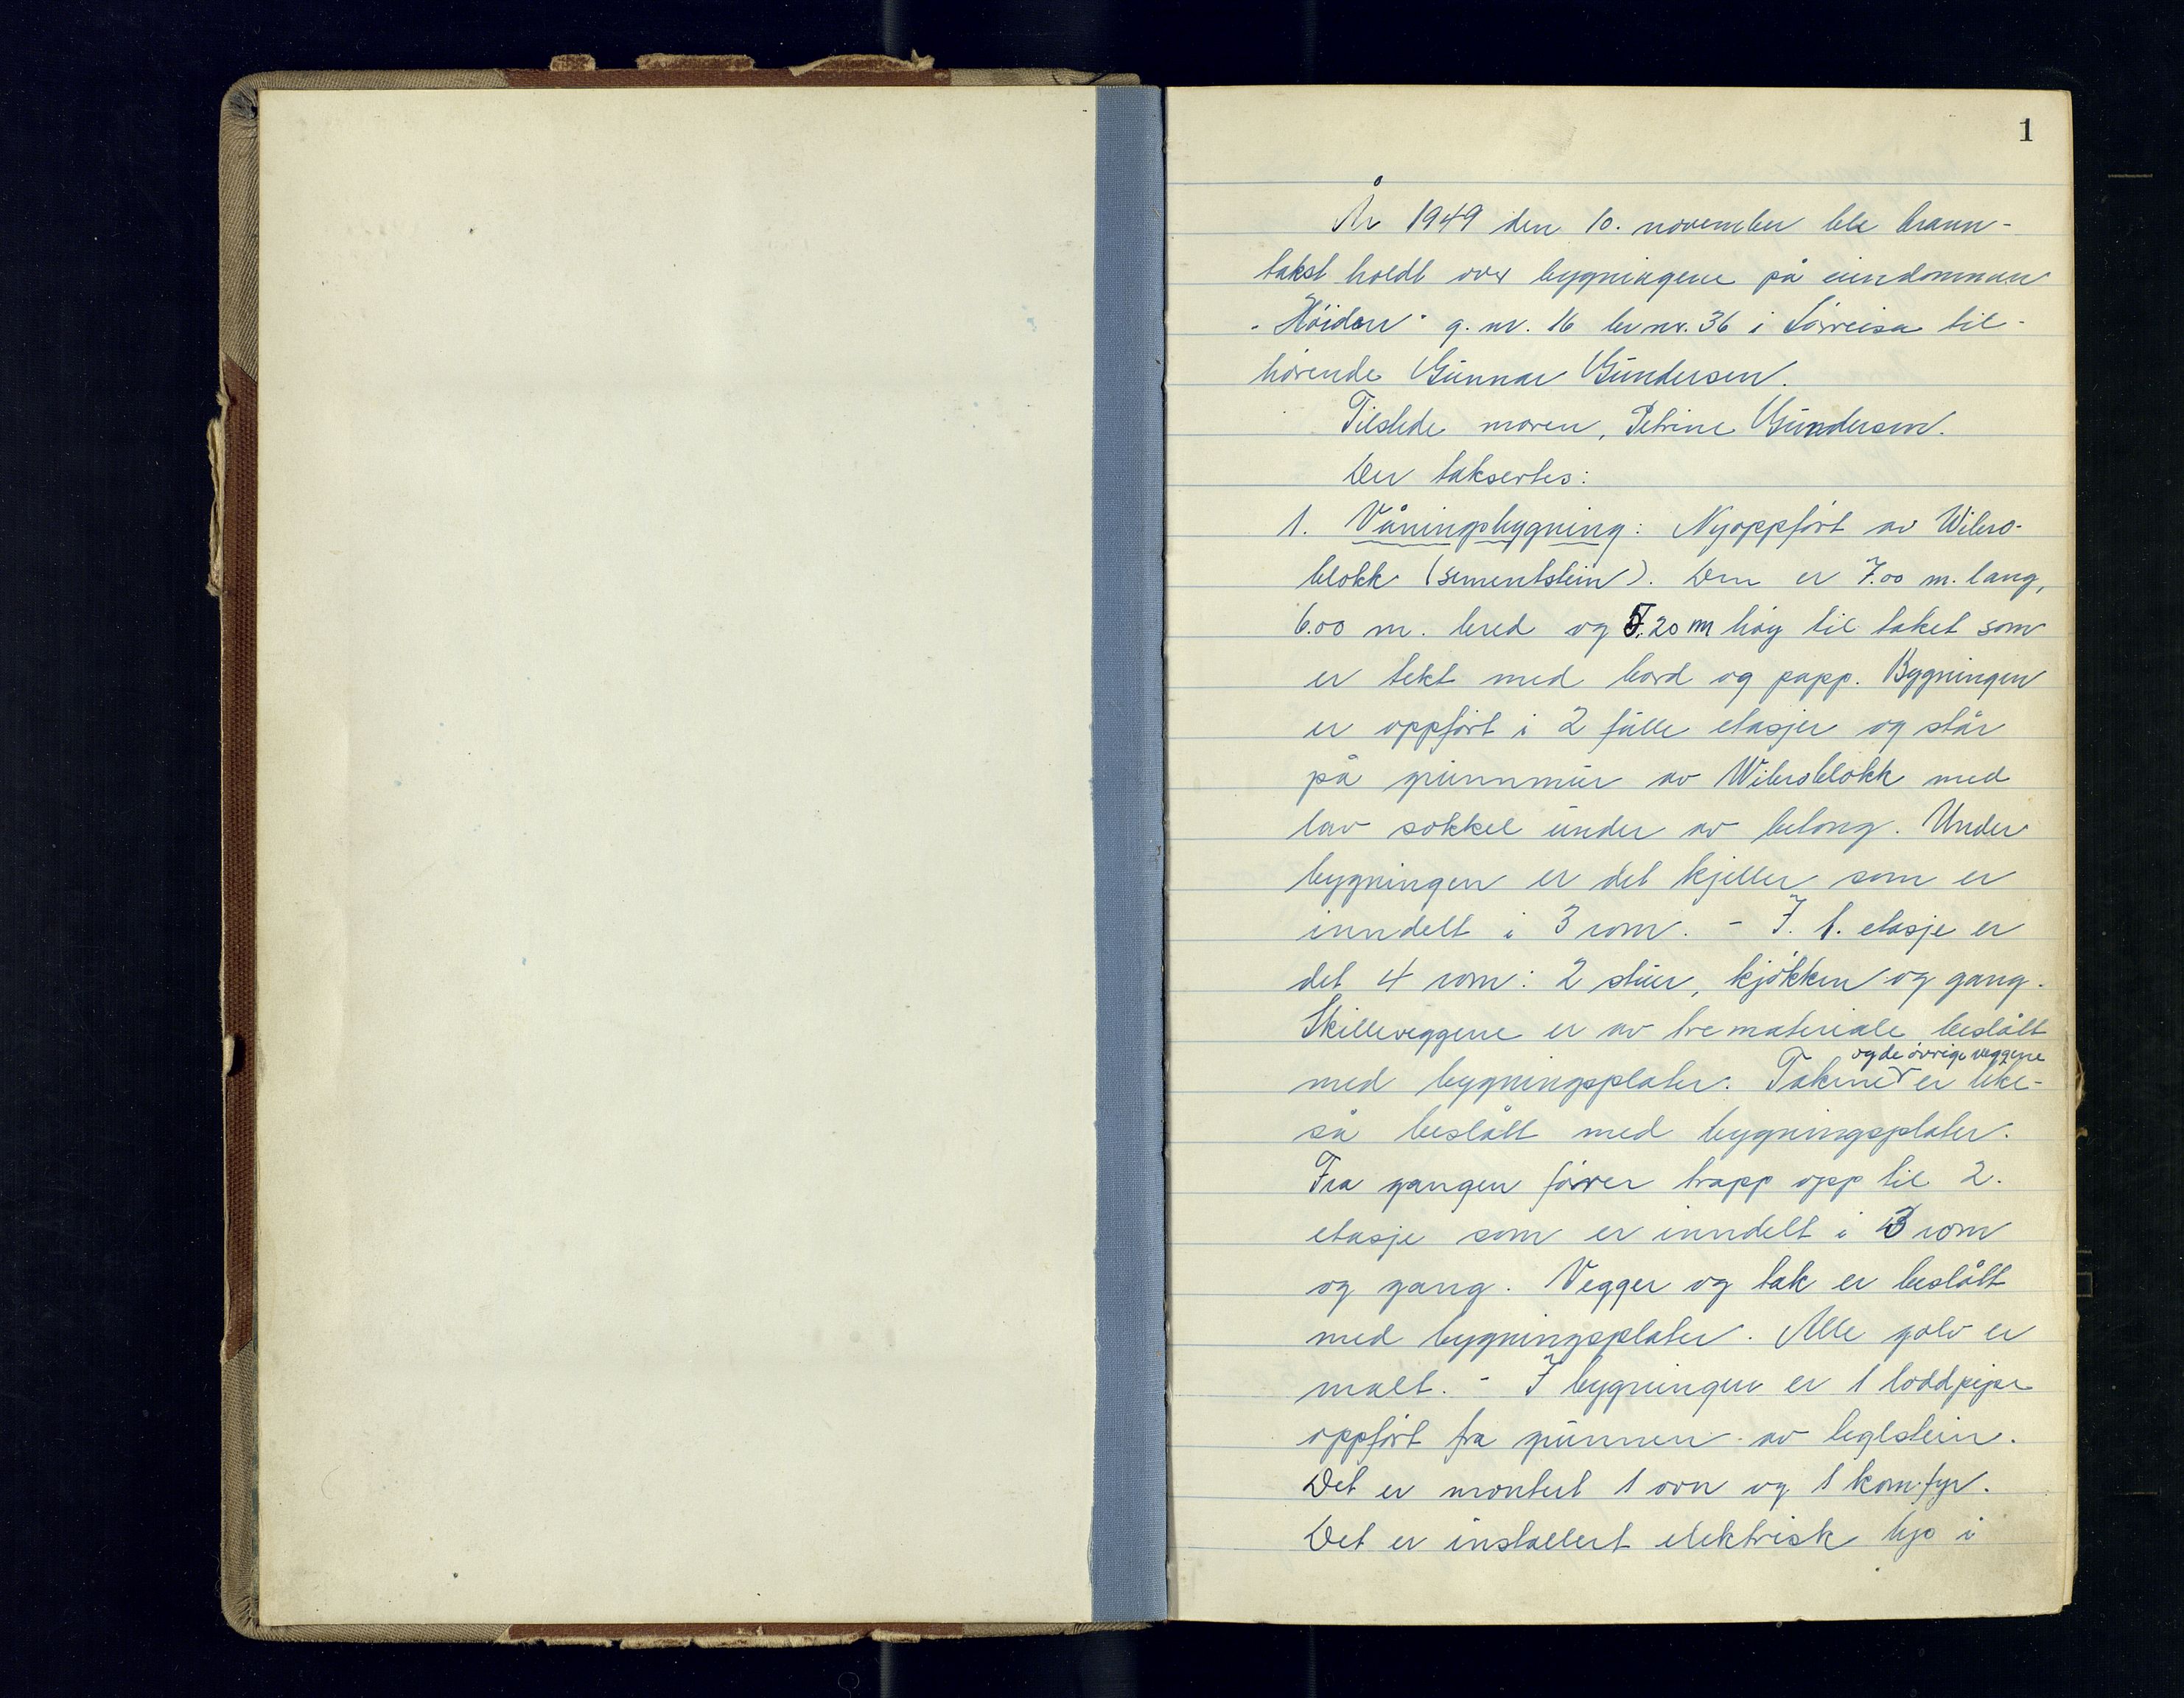 1
År 1949 den 10. november ble brann-
takst holdt over bygningene på eiendommen
"Höiden" g. nr. 16 br.nr. 36 i Sörreisa til-
hörende Gunnar Gundersen.
Tilstede moren, Petrine Gundersen.
Der taksertes:
1. Våningsbygning: Nyoppfört av Wibro-
blokk (sementstein). Den er 7.00 m. lang,
6.00 m. bred og 5.20 m höy til taket som
er tekt med bord og papp. Bygningen
er oppfört i 2 fulle etasjer og står
på grunnmur av Wibroblokk med
lav sokkel under av betong. Under
bygningen er det kjeller som er
inndelt i 3 rom. - I 1. etasje er
det 4 rom: 2 stuer, kjökken og gang.
Skilleveggene er av tremateriale beslått
og de övrige veggene
med bygningsplater. Takene er like-
så beslått med bygningsplater.
Fra gangen förer trapp opp til 2.
etasje som er inndelt i 3 rom
og gang. Vegger og tak er beslått
med bygningsplater. Alle golv er
malt. - I bygningen er 1 loddpipe
oppfört fra grunnen av teglstein.
Det er montert 1 ovn og 1 komfyr.
Det er installert elektrisk lys i